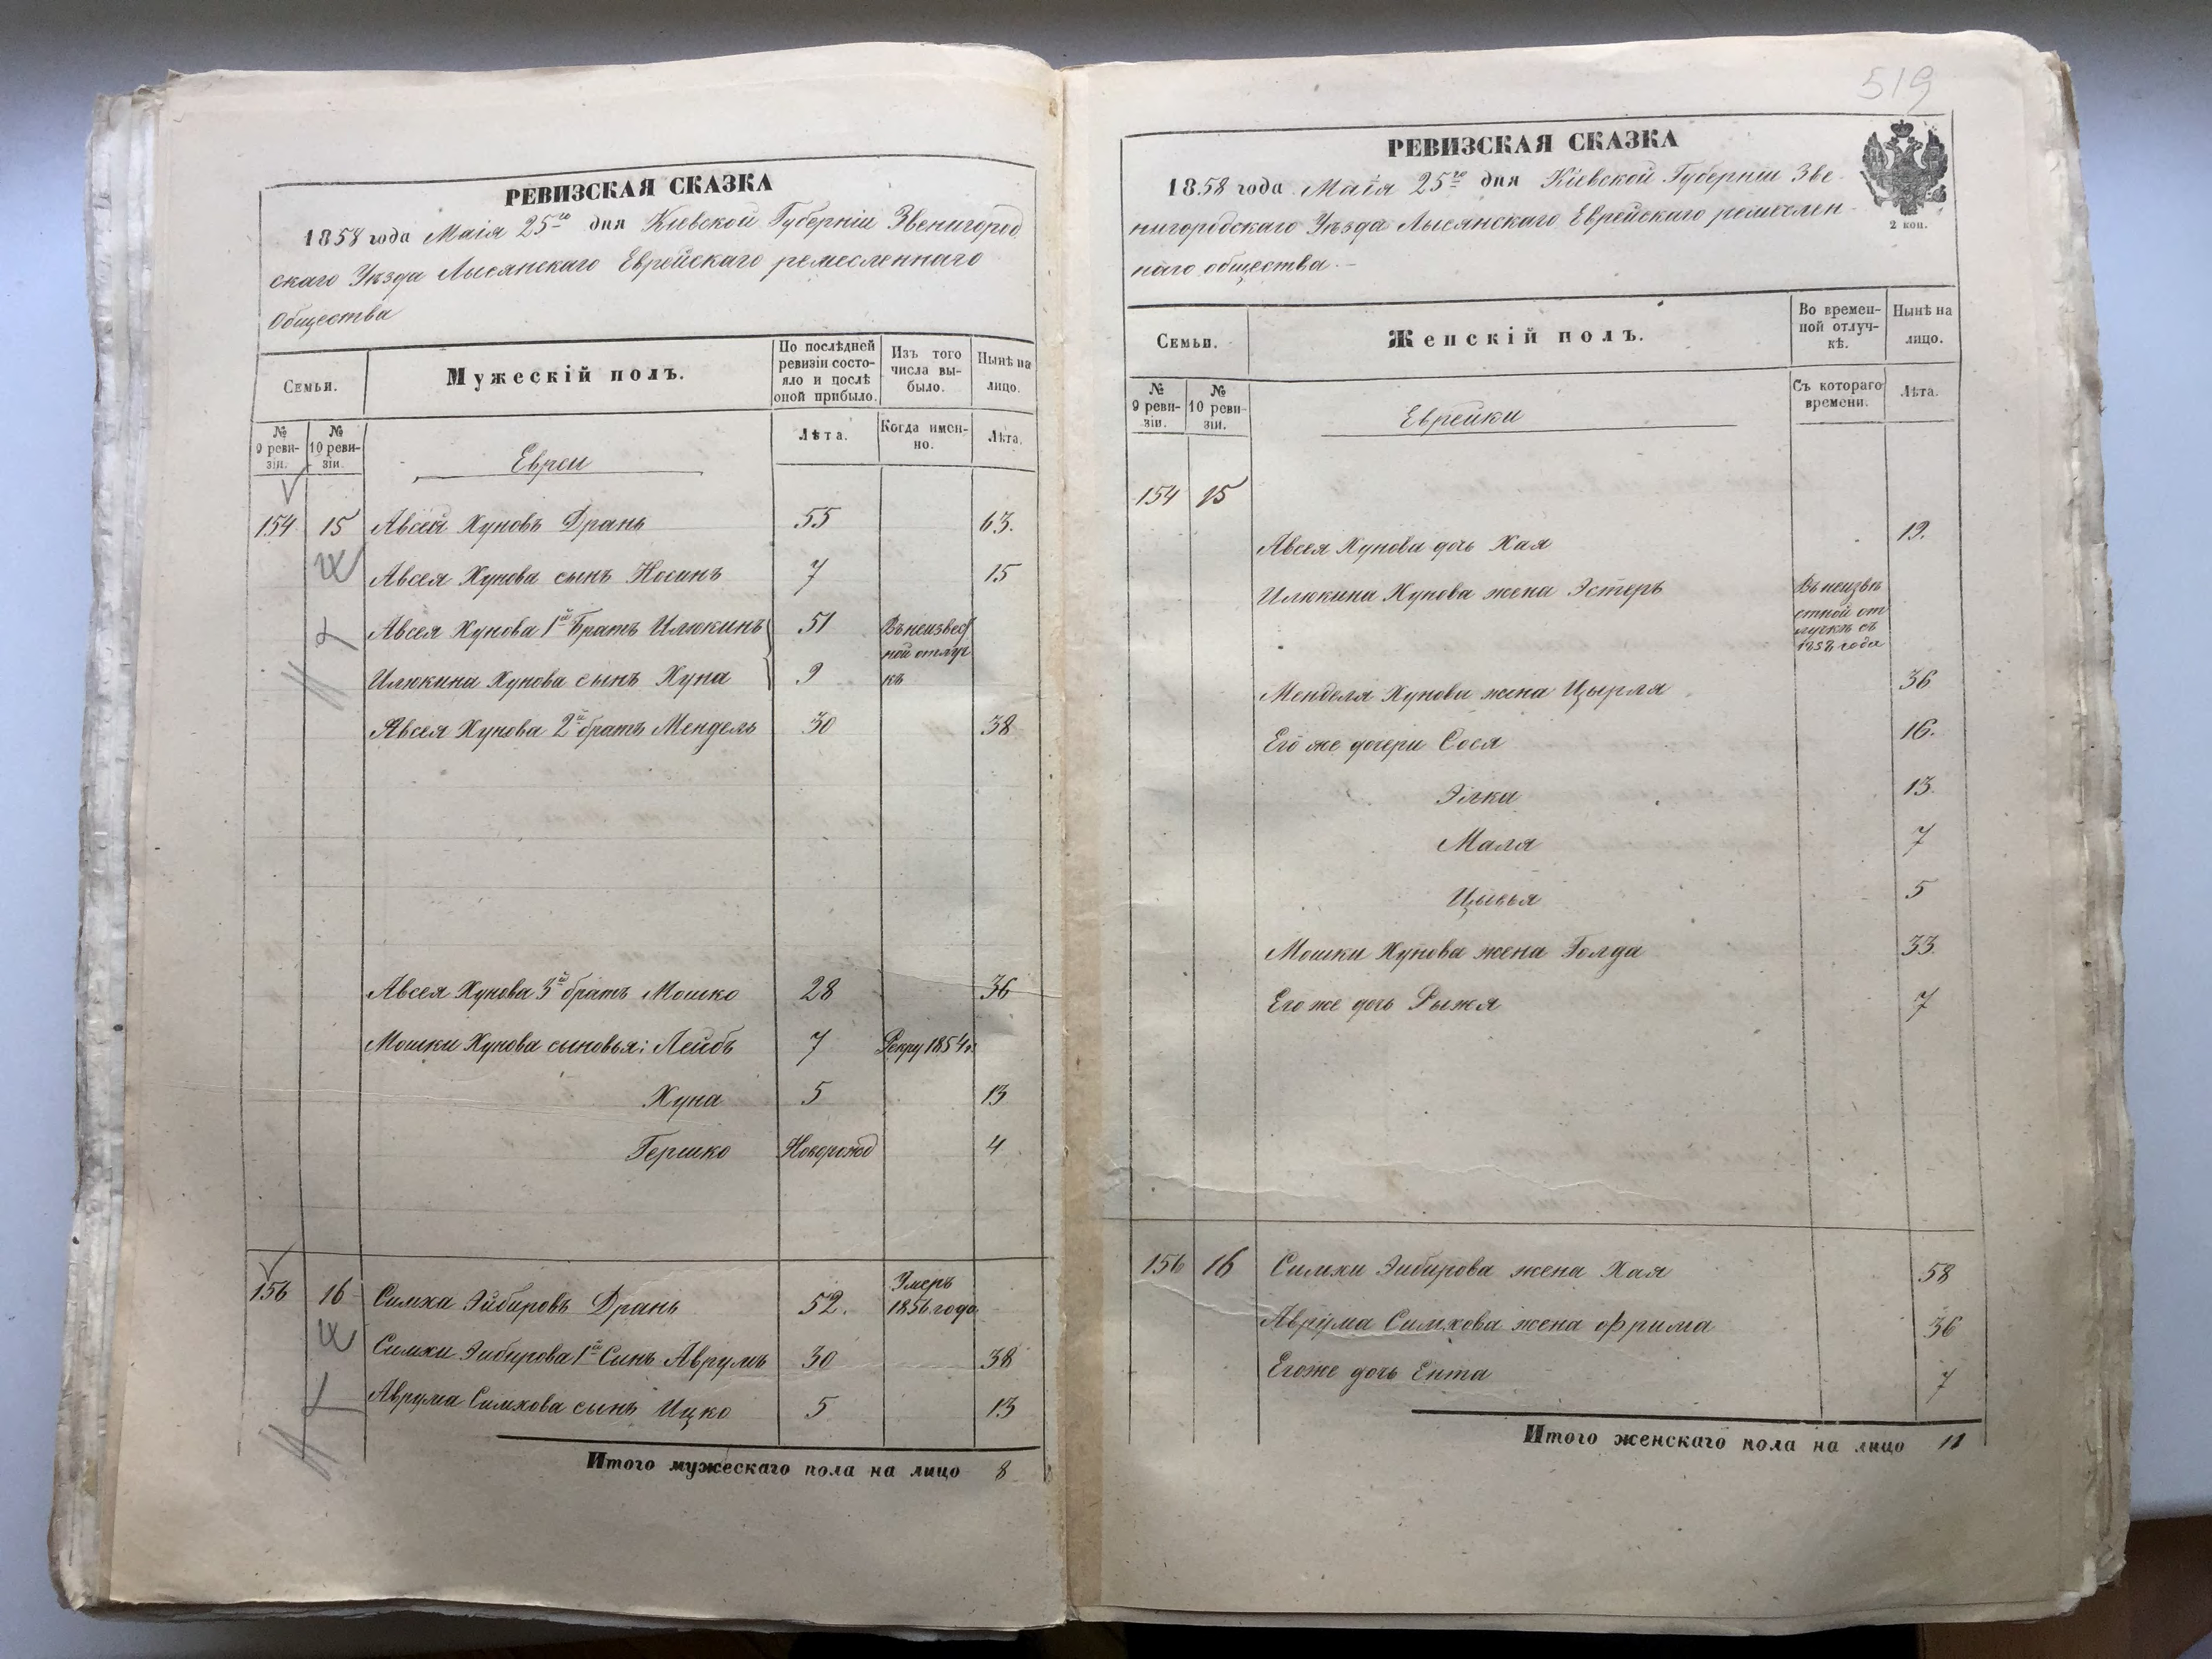 РЕВИЗСКАЯ СКАЗКА
1858 года Маія 25го дня Кіевской Губерніи Звенигород
скаго Уѣзда Лысянскаго Еврейскаго ремесленнаго
Общества
Семьи.
Мужескій полъ.
По послѣдней ревизіи состо-
яло и послѣ оной прибыло.
Изъ того числа вы-
было.
Нынѣ на лицо.
№ 9 реви-
зіи.
№ 10 реви-
зіи.
Евреи
Лѣта.
Когда имен-
но.
Лѣта.
154 15 Авсей Хуновъ Дрань 55 63.
Авсея Хунова сынъ Носинъ 7 15
Авсея Хунова 1й Братъ Илюкинъ 51 Въ неизвест
ной отлуч
Илюкина Хунова сынъ Хуна 9 кѣ
Авсея Хунова 2й братъ Мендель 30 38
Авсея Хунова 3й братъ Мошко 28 36
Мошки Хунова сыновья: Лейбъ 7 Рекру 1854г.
Хуна 5 13
Гершко Новорожд 4
Умеръ
156 16 Симха Эйбировъ Дрань 52. 1856 года
Симхи Эибирова 1й Синъ Аврумъ 30 38
Аврума Симхова сынъ Ицко 5 13
Итого мужескаго пола на лицо 8
519
РЕВИЗСКАЯ СКАЗКА
1858 года Маія 25го дня Кіевской Губерніи Зве-
нигородскаго Уѣзда Лысянскаго Еврейскаго ремеслен-
наго общества.
2 коп.
Семьи.
Женскій полъ.
Во времен-
ной отлуч-
кѣ.
Нынѣ на лицо.
№ 9 реви-
зіи.
№ 10 реви-
зіи.
Еврейки
Съ котораго времени.
Лѣта.
154 15
Авсея Хунова дочь Хая 19.
Илюкина Хунова жена Эстеръ Въ неизвѣ
стной от
лучкѣ съ
1858 года
Менделя Хунова жена Цырля 36
Его же дочери Сося 16.
Элка 13.
Маля 7
Цывья 5
Мошки Хунова жена Голда 33.
Его же дочь Рыжя 7
156 16 Симхи Эибирова жена Хая 58
Аврума Симхова жена Фрима 36
Егоже дочь Ента 7
Итого женскаго пола на лицо 11